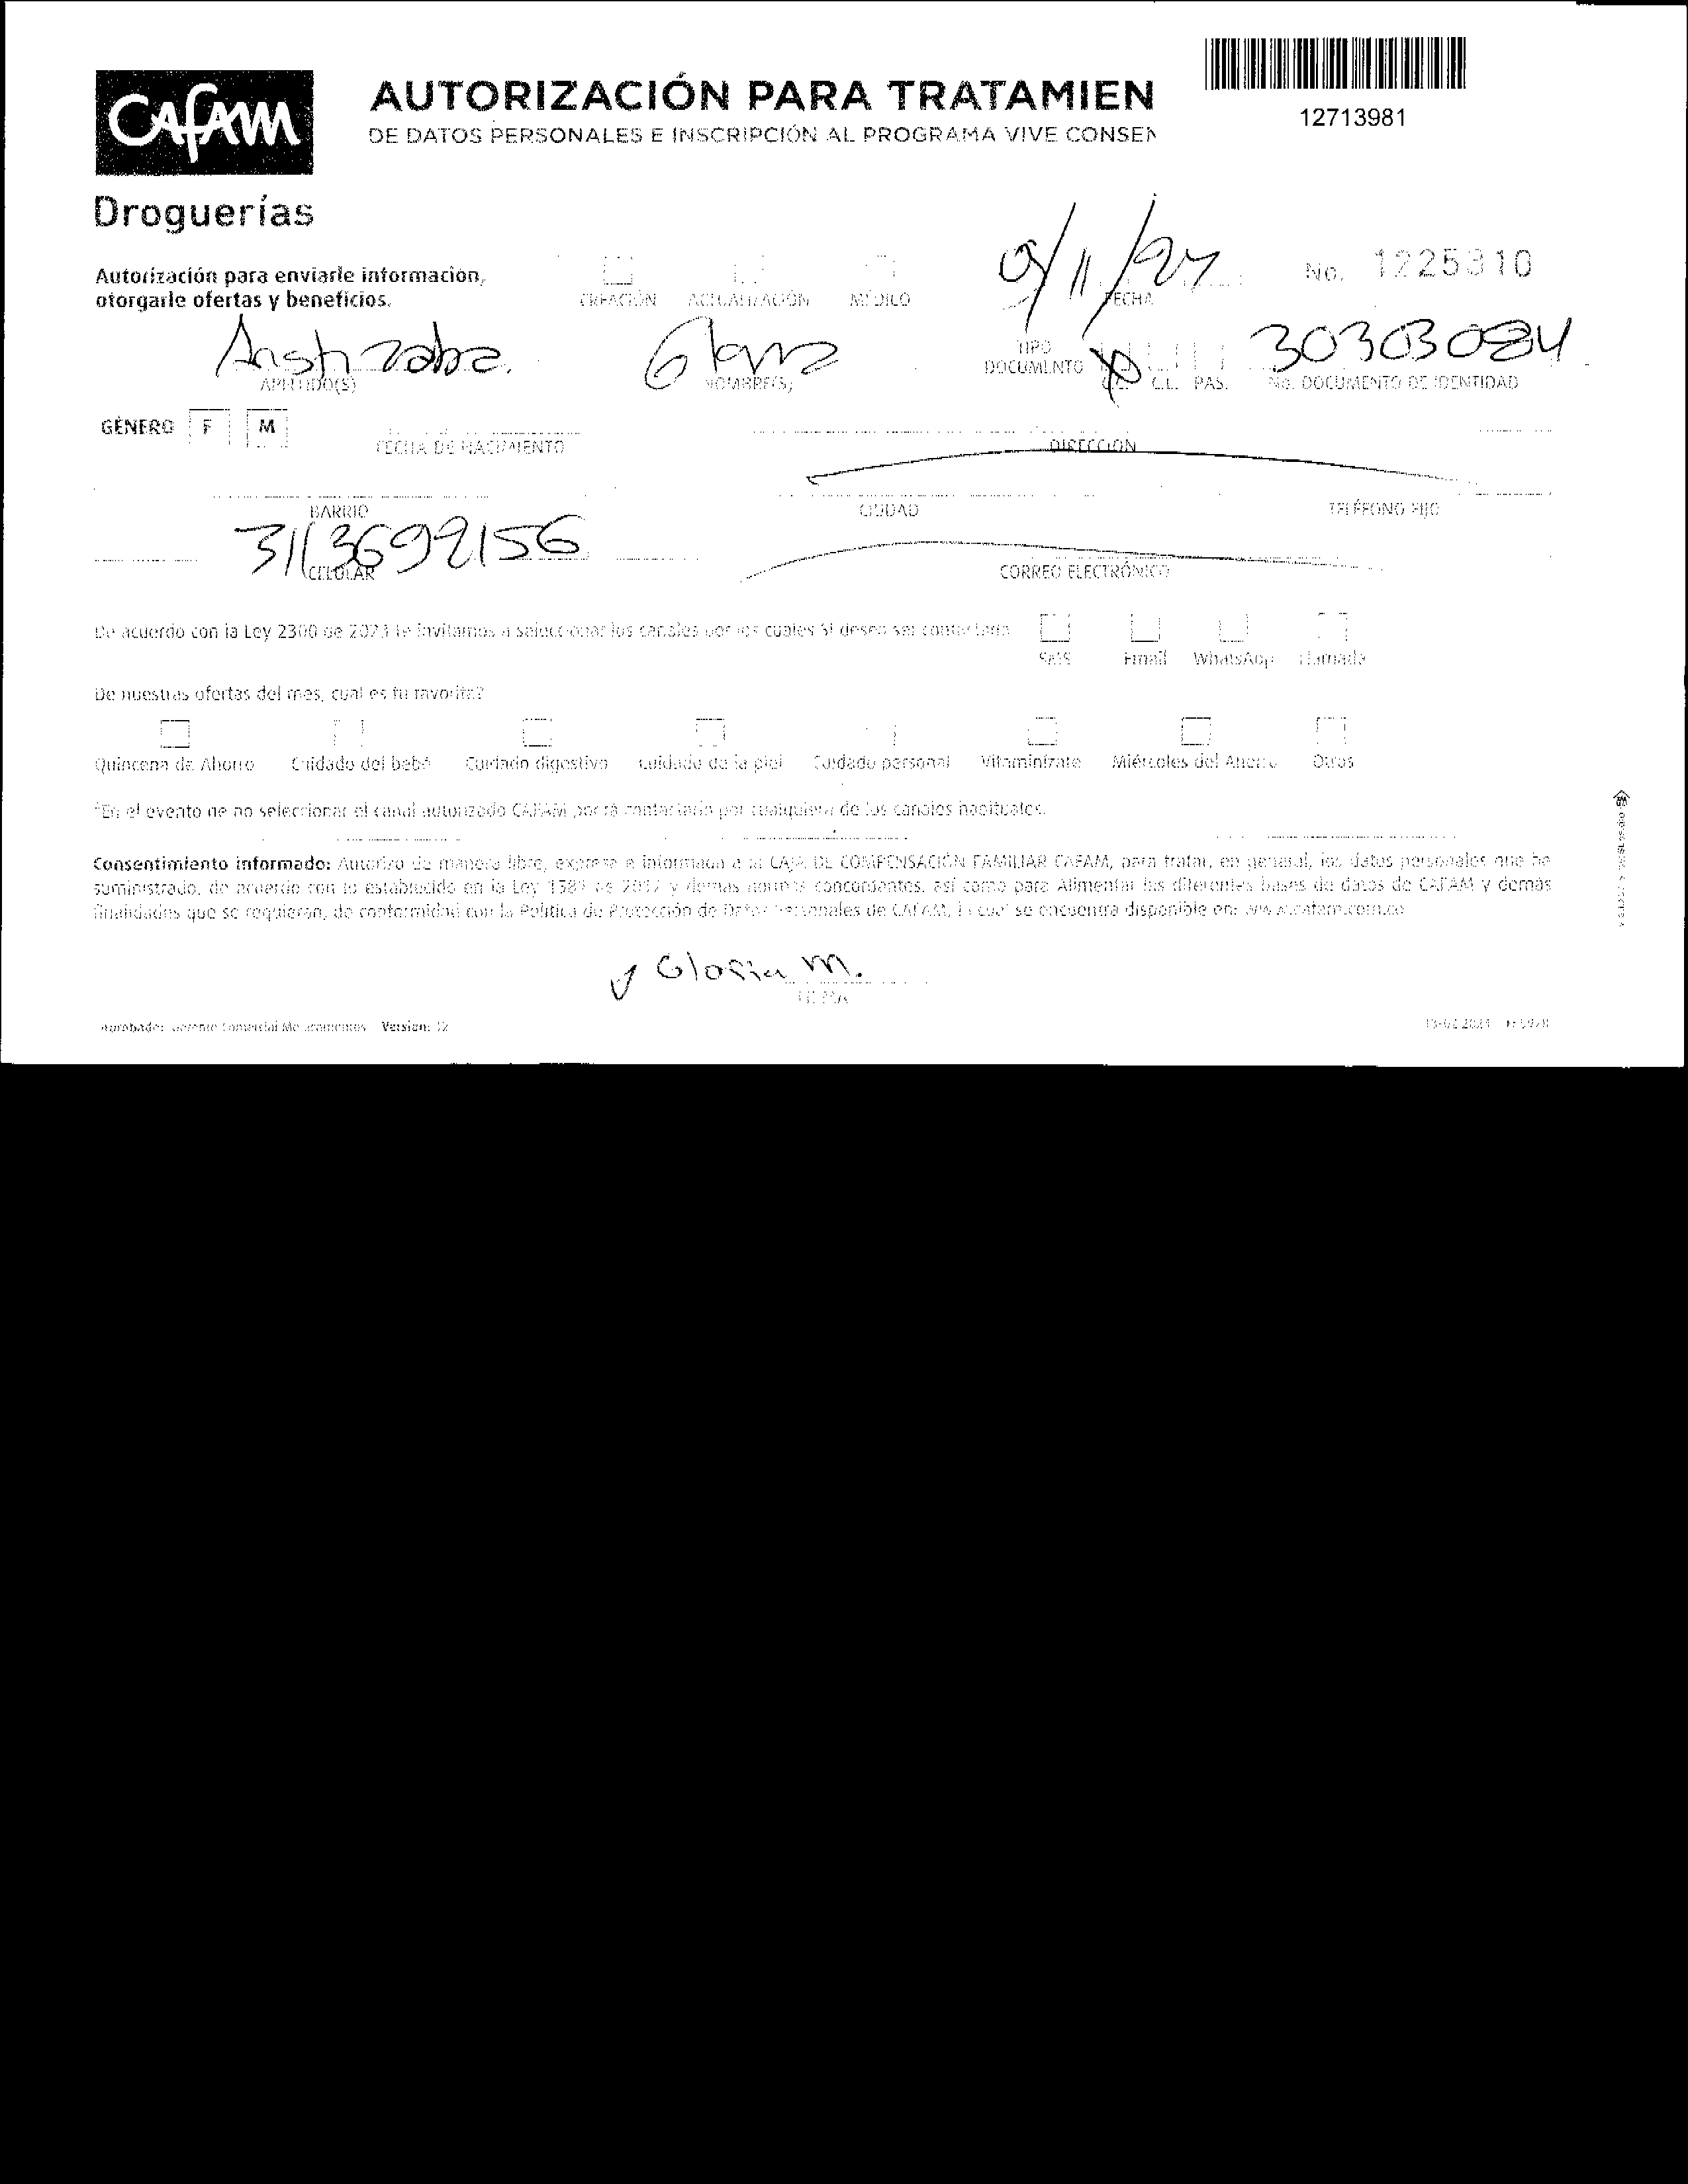 12713981
CAFAM
AUTORIZACIÓN PARA TRATAMIEN
DE DATOS PERSONALES E INSCRIPCIÓN AL PROGRAMA VIVE CONSEN
Droguerías
Autorización para enviarle información,
otorgarle ofertas y beneficios.
CREACIÓN ACTUALIZACIÓN MÉDICO
FECHA
No. 1225310
TIPO
DOCUMENTO
30303084
APELLIDO(S) NOMBRE(S) C.C. C.E. PAS. No. DOCUMENTO DE IDENTIDAD
GÉNERO F M
FECHA DE NACIMIENTO DIRECCIÓN
BARRIO CIUDAD TELÉFONO FIJO
3113699156
CELULAR CORREO ELECTRÓNICO
De acuerdo con la Ley 2300 de 2023 te invitamos a seleccionar los canales por los cuales SI desea ser contactado
SMS Email WhatsApp Llamada
De nuestras ofertas del mes, cual es tu favorita?
Quincena de Ahorro Cuidado del bebé Cuidado digestivo Cuidado de la piel Cuidado personal Vitaminízate Miércoles del Ahorro Otros
*En el evento de no seleccionar el canal autorizado CAFAM podrá contactarlo por cualquiera de los canales habituales.
Consentimiento informado: Autorizo de manera libre, expresa e informada a la CAJA DE COMPENSACIÓN FAMILIAR CAFAM, para tratar, en general, los datos personales que he
suministrado, de acuerdo con lo establecido en la Ley 1581 de 2012 y demás normas concordantes, así como para Alimentar las diferentes bases de datos de CAFAM y demás
finalidades que se requieran, de conformidad con la Política de Protección de Datos Personales de CAFAM, la cual se encuentra disponible en: www.cafam.com.co
Gloria M.
FIRMA
Aprobador: Gerente Comercial Medicamentos Version: 12